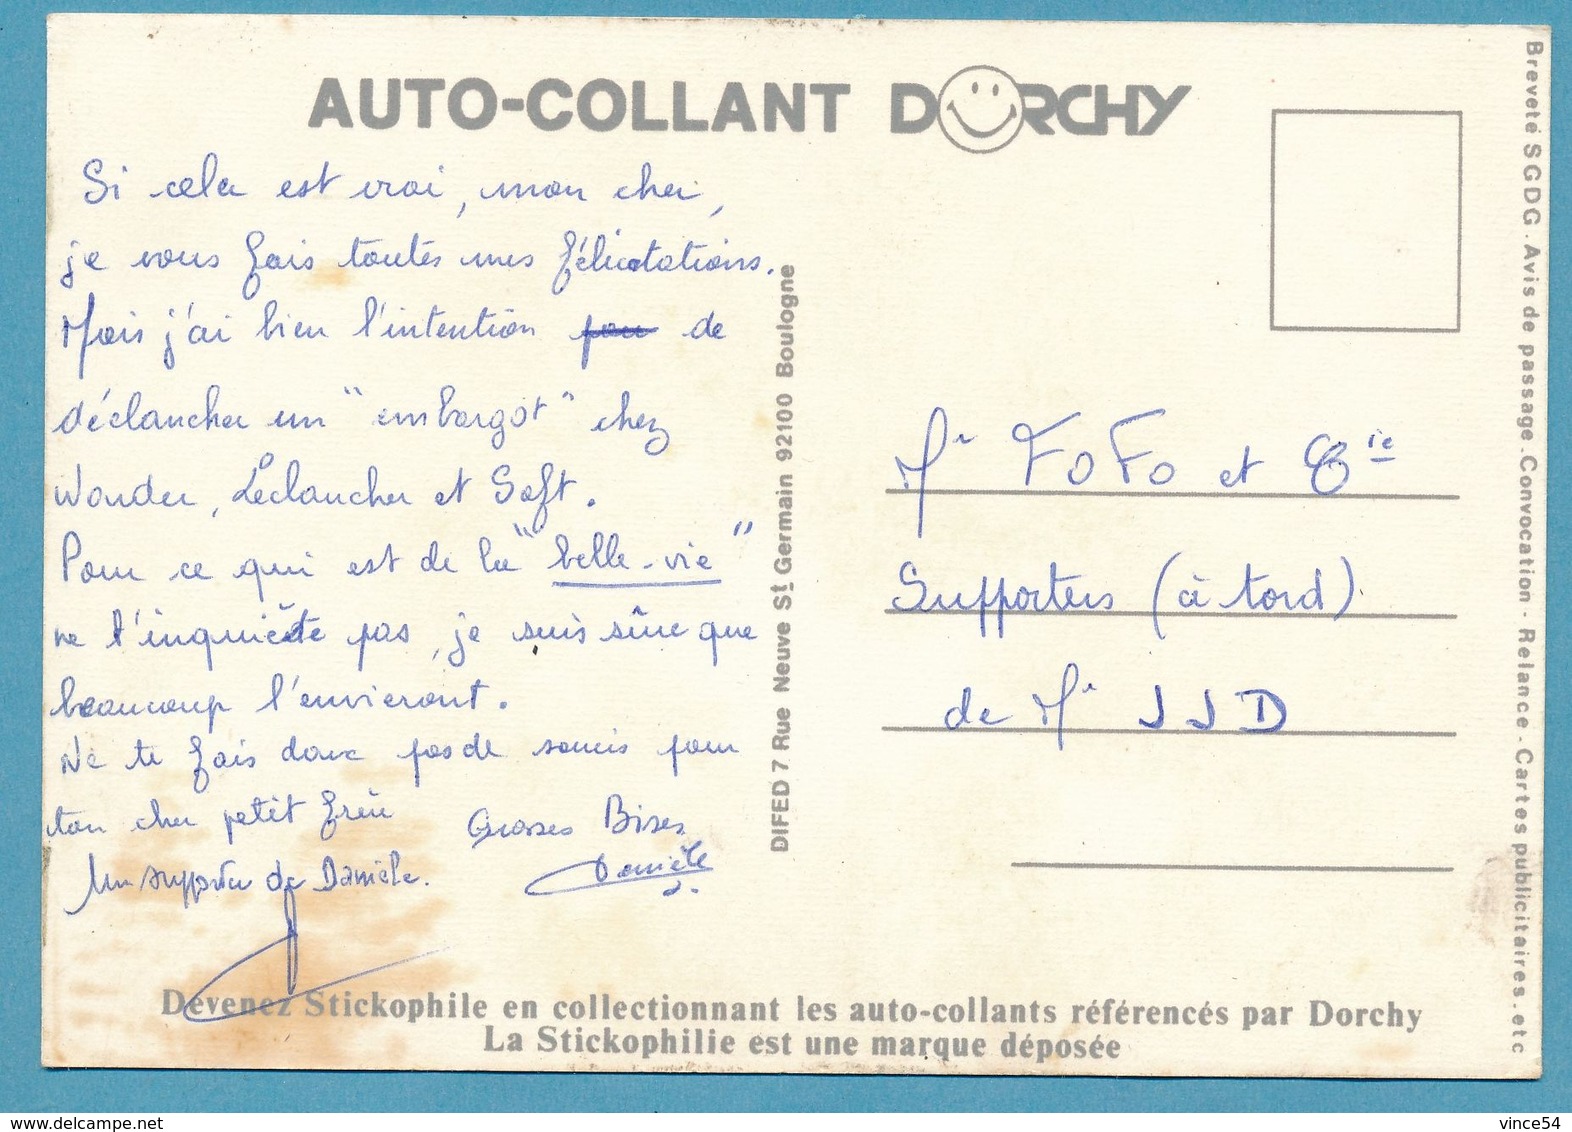 AUTO-COLLANT DORCHY
Si cela est vrai, mon cher,
je vous fais toutes mes félicitations.
Mais j'ai bien l'intention pou de
déclancher un "embargot" chez
Wonder, Leclancher et Saft.
Pour ce qui est de la "belle-vie"
ne t'inquiète pas, je suis sûre que
beaucoup l'envieront.
Ne te fais donc pas de soucis pour
ton cher petit frère
Grosses Bises
Danièle
Un supporter de Danièle.
DIFED 7 Rue Neuve St Germain 92100 Boulogne
Mr FOFO et Cie
Supporters (à tord)
de Mr JJD
Breveté SGDG. Avis de passage. Convocation - Relance - Cartes publicitaires. etc
Devenez Stickophile en collectionnant les auto-collants référencés par Dorchy
La Stickophilie est une marque déposée
www.delcampe.net
vince54